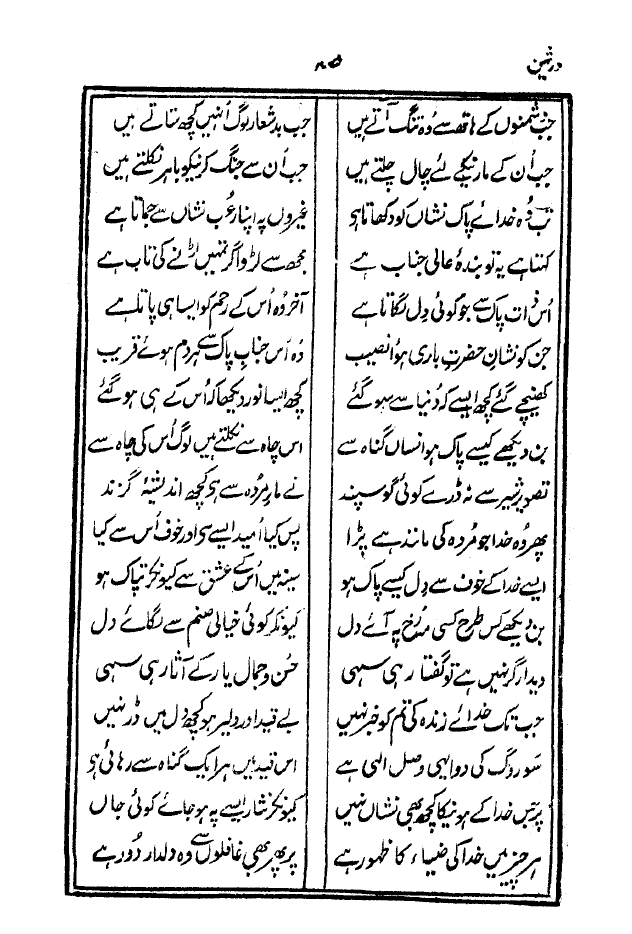 درثمین ۸۵
جب دشمنوں کے ہاتھ سے وُہ تنگ آتے ہیں جب بد شعار لوگ اُنہیں کچھ ستاتے ہیں
جب اُن کے مارنیکے لئے چال چلتے ہیں جب اُن سے جنگ کرنیکو باہر نکلتے ہیں
تب وُہ خدائے پاک نشاں کو دکھاتا ہے غیروں پہ اپنا رعُب نشاں سے جماتا ہے
کہتا ہے یہ تو بندۂ عالی جناب ہے مجھ سے لڑو اگر تمہیں لڑنے کی تاب ہے
اُس ذات پاک سے جو کوئی دِل لگاتا ہے آخر وُہ اُس کے رحم کو ایسا ہی پاتا ہے
جن کو نشانِ حضرتِ باری ہوُا نصیب وُہ اُس جنابِ پاک سے ہر دم ہوئے قریب
کھنچے گئے کچھ ایسے کہ دُنیا سے سو گئے کچھ ایسا نور دیکھا کہ اُس کے ہی ہو گئے
بن دیکھے کیسے پاک ہو انساں گناہ سے اس چاہ سے نکلتے ہیں لوگ اُس کی چاہ سے
تصویر شیر سے نہ ڈرے کوئی گوسپند نَے مارِ مُردہ سے ہو کچھ اندیشۂ گزند
پھر وُہ خدا جو مُردہ کی مانند ہے پڑا پس کیا اُمید ایسے سے اور خوف اُس سے کیا
ایسے خدا کے خوف سے دِل کیسے پاک ہو سینہ میں اُس کے عشق سے کیونکر تپاک ہو
بن دیکھے کس طرح کسی مہ رُخ پہ آئے دل کیونکر کوئی خیالی صنم سے لگائے دل
دیدار گر نہیں ہے تو گفتار ہی سہی حُسن و جمالِ یار کے آثار ہی سہی
جب تک خدائے زندہ کی تم کو خبر نہیں بے قید اور دلیر ہو کچھ دل میں ڈر نہیں
سو روگ کی دوا یہی وصل الٰہی ہے اس قید میں ہر ایک گناہ سے رہائی ہو
پر جس خدا کے ہونیکا کچھ بھی نشاں نہیں کیونکر نثار ایسے پہ ہو جائے کوئی جاں
ہر چیز میں خدا کی ضیاء کا ظہور ہے پر پھر بھی غافلوں سے وہ دلدار دُور ہے